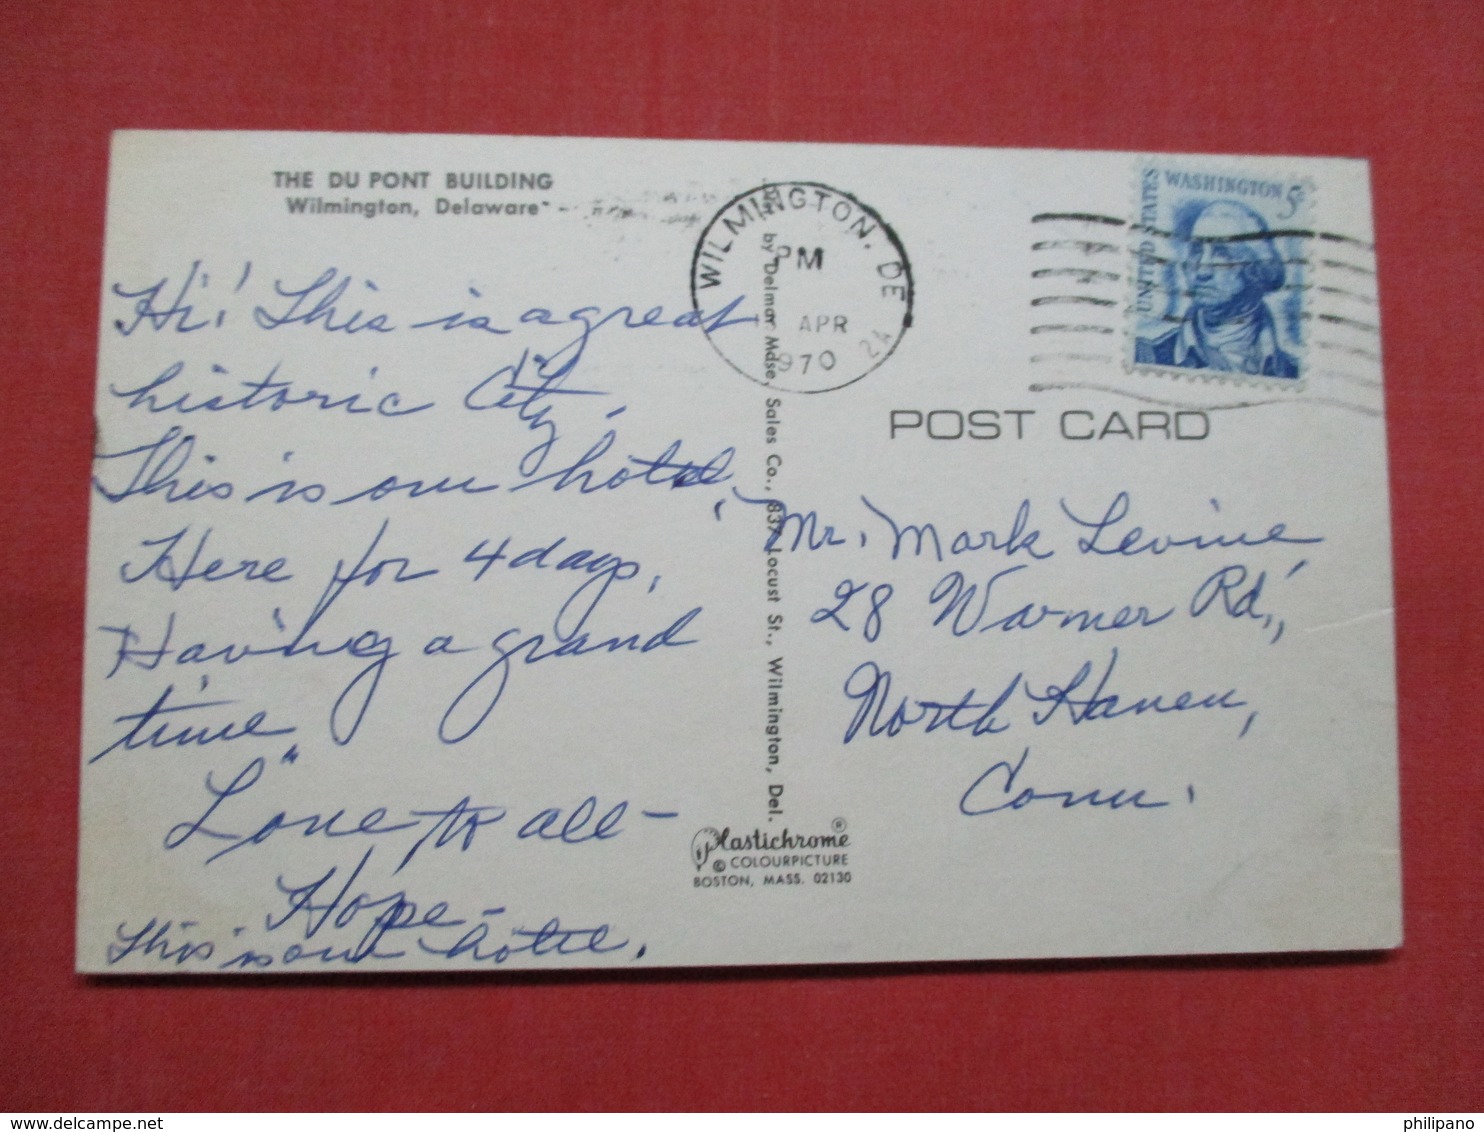 THE DU PONT BUILDING
Wilmington, Delaware
Hi! This is a great
historic City.
This is our hotel.
Here for 4 days.
Having a grand
time.
Love to all –
Hope –
This is our hotel.
by Delmar Mdse. Sales Co., 837 Locust St., Wilmington, Del.
Plastichrome ®
© COLOURPICTURE
BOSTON, MASS. 02130
WILMINGTON, DE
PM
APR
1970
2A
UNITED STATES
WASHINGTON 5c
POST CARD
Mr. Mark Levine,
28 Warner Rd.,
North Haven,
Conn.
philipano